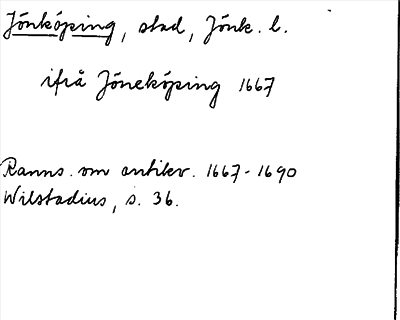 Jönköping, stad, Jönk. l.
ifrå Jöneköping 1667
Ranns. om antikv. 1667-1690
Wilstadius, s. 36.